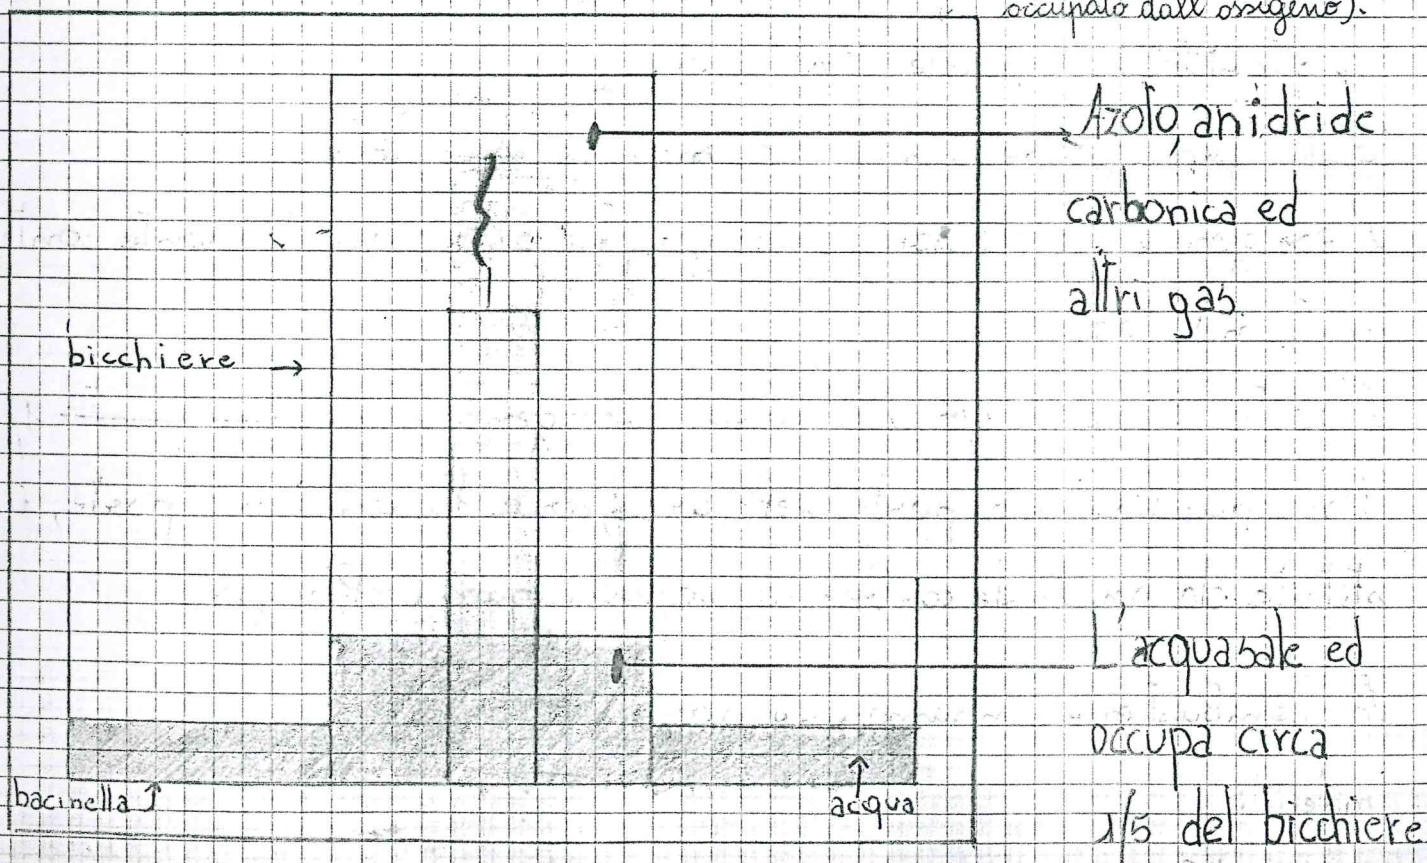 occupato dall'ossigeno).
Azoto, anidride
carbonica ed
altri gas
bicchiere →
L'acqua sale ed
occupa circa
1/5 del bicchiere
bacinella ↑
acqua